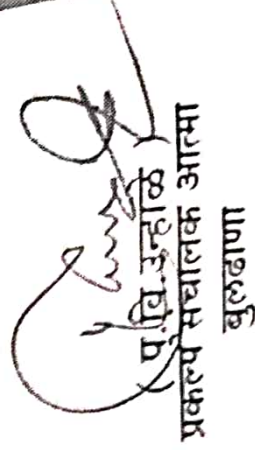 प.वि.उन्हाळे
प्रकल्प संचालक आत्मा
बुलढाणा